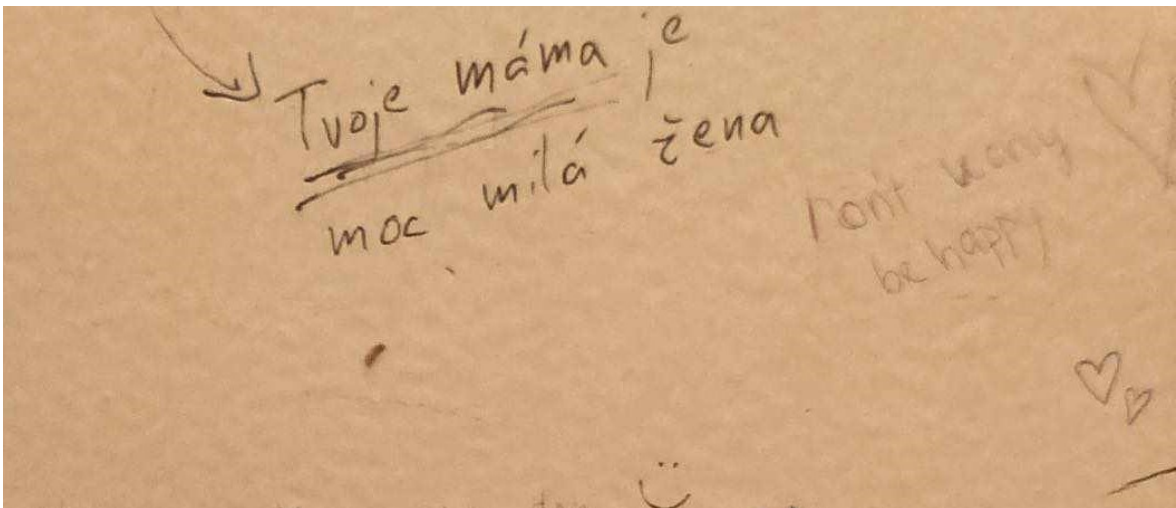 Tvoje máma je
moc milá žena
Don't worry
be happy